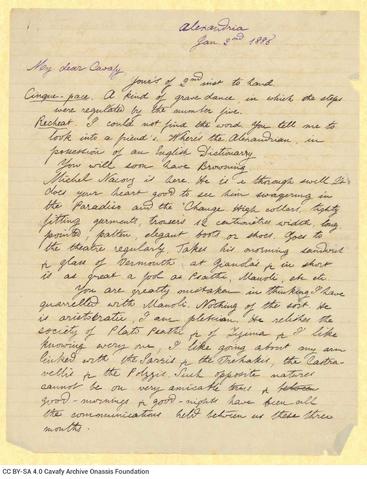 Alexandria
Jan 2nd 1886
My dear Cavafy
Yours of 2nd inst to hand.
Cinque-pace. A kind of grave dance in which the steps
were regulated by the number five.
Recheat. I could not find the word. You tell me to
look into a friend's. Where's the Alexandrian in
possession of an English Dictionary
You will soon have Browning
Michel is here. He is a thorough swell. It
does your heart good to see him swaggering in
the Paradiso and the 'Change High collars, tightly
fitting garments, trousers 12 centimetres width, long
pointed patten, elegant boots or shoes. Goes to
the theatre regularly. Takes his morning sandwich
& glass of Vermouth, at & in short
is as great a fool as Psathi, Manoli, etc etc.
You are greatly mistaken in thinking I have
quarrelled with Manoli. Nothing of the sort. He
is aristocratic, I am plebeian. He relishes the
society of Plato Psathi & of & I like
knowing every one, I like going about my arm
linked with the & the the
& the Such opposite natures
cannot be on very amicable terms &
good-mornings & good-nights have been all
the communications held between us these three
months.
CC BY-SA 4.0 Cavafy Archive Onassis Foundation